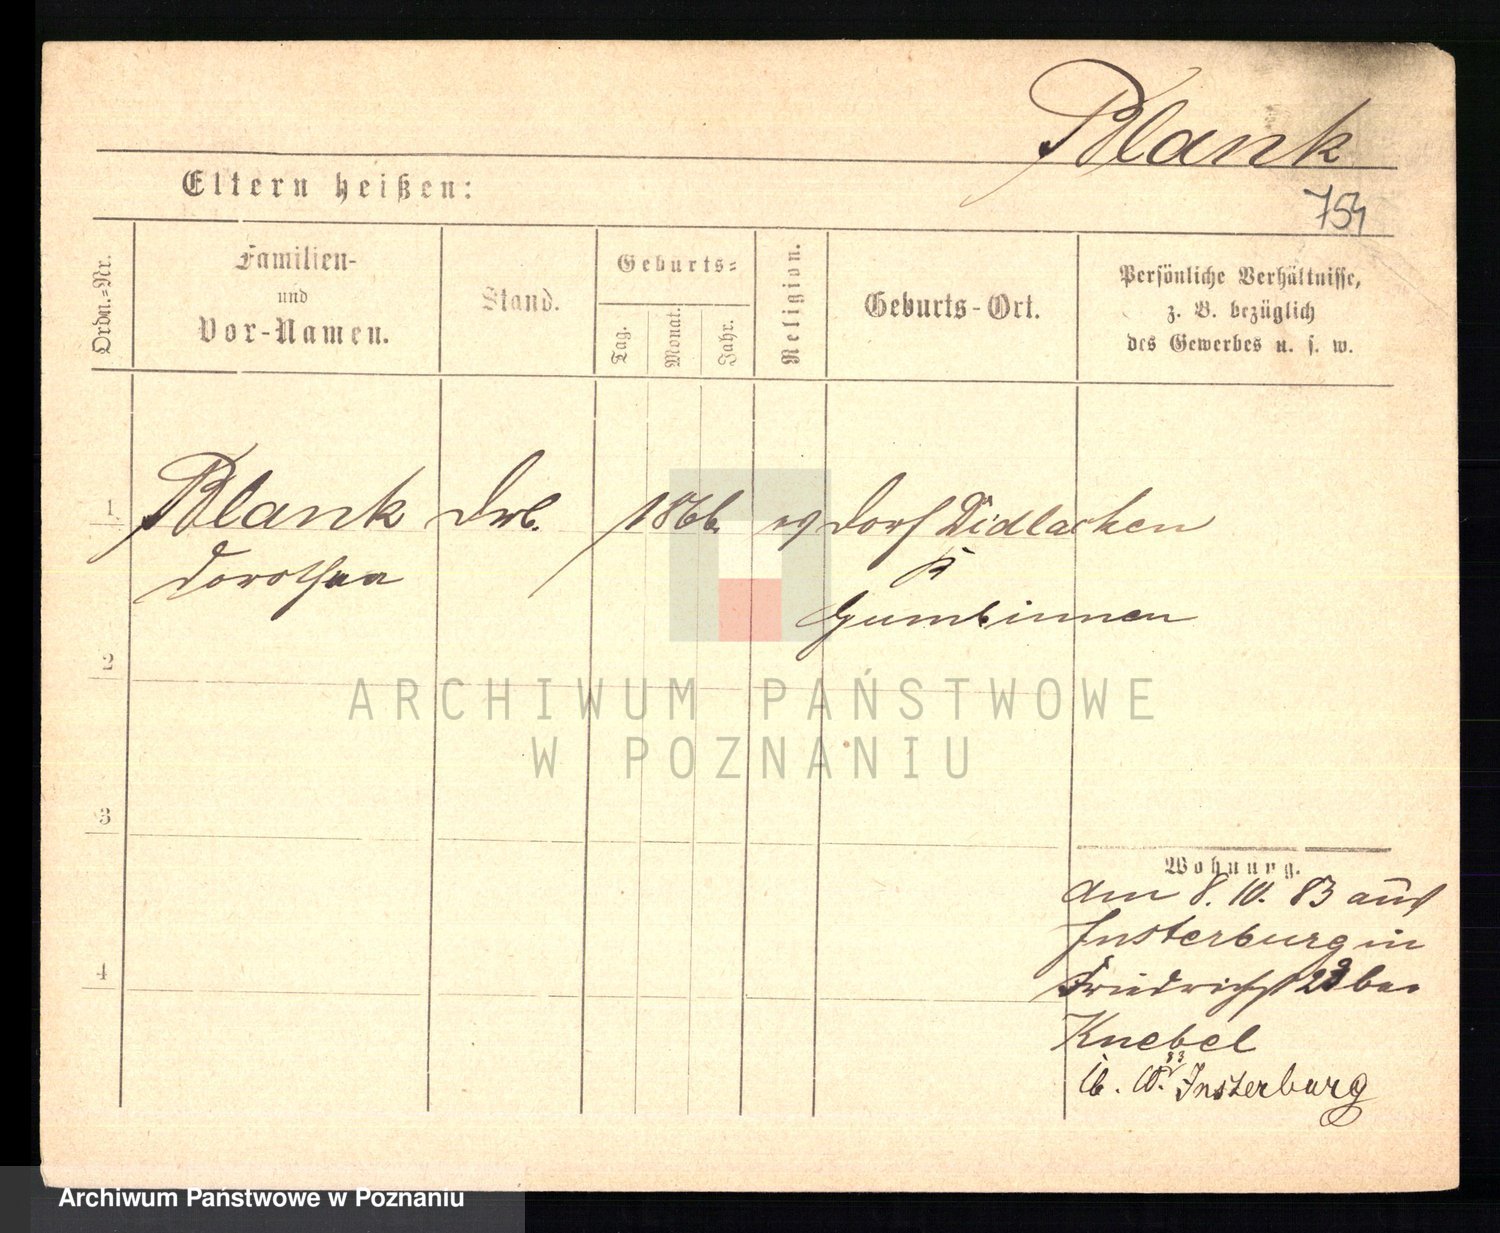 Blank
Eltern heißen:
754
Ordn.-Nr.
Familien-
und
Vor-Namen.
Stand.
Geburts-
Tag.
Monat.
Jahr.
Religion.
Geburts-Ort.
Persönliche Verhältnisse,
z. B. bezüglich
des Gewerbes u. s. w.
1
Blank
Dorothea
1866.
ev
Dorf Didlacken
K
Gumbinnen
2
ARCHIWUM PAŃSTWOWE
W POZNANIU
3
Wohnung.
am 8. 10. 83 aus
Insterburg in
Friedrichst 23 bei
Knebel
83
Insterburg
4
Archiwum Państwowe w Poznaniu